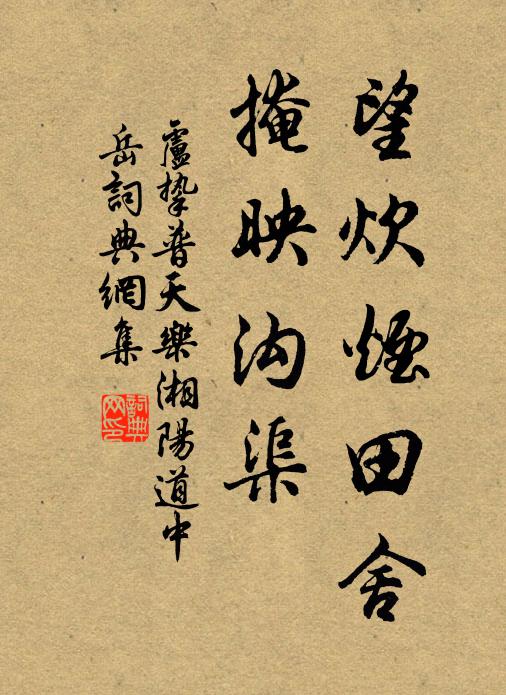 望炊煙田舍
掩映沟渠
盧摯普天樂湘陽道中
岳詞典網集
詞典
网印